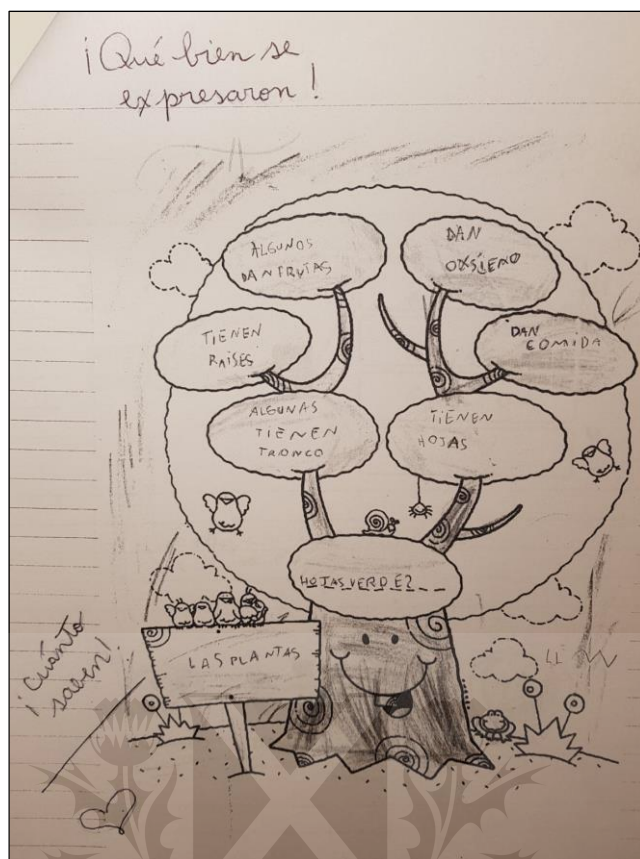 ¡Qué bien se
expresaron!
ALGUNOS
DAN FRUTAS
DAN
OXSIENO
TIENEN
RAÍSES
DAN
COMIDA
ALGUNAS
TIENEN
TRONCO
TIENEN
HOJAS
HOJAS VERDEZ
LAS PLANTAS
¡Cuánto
saben!